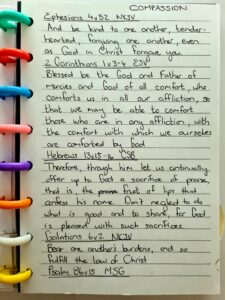 COMPASSION
Ephesians 4v32 NKJV
And be kind to one another, tender-
hearted, forgiving one another, even
as God in Christ forgave you
2 Corinthians 1v3-4 ESV
Blessed be the God and Father of
mercies and God of all comfort, who
comforts us in all our affliction, so
that we may be able to comfort
those who are in any affliction, with
the comfort with which we ourselves
are comforted by God
Hebrews 13v15-16 CSB
Therefore, through him let us continually
offer up to God a sacrifice of praise,
that is, the fruit of lips that
confess his name. Don't neglect to do
what is good and to share, for God
is pleased with such sacrifices.
Galatians 6v2 NKJV
Bear one another's burdens, and so
fulfill the law of Christ
Psalm 86v15 MSG